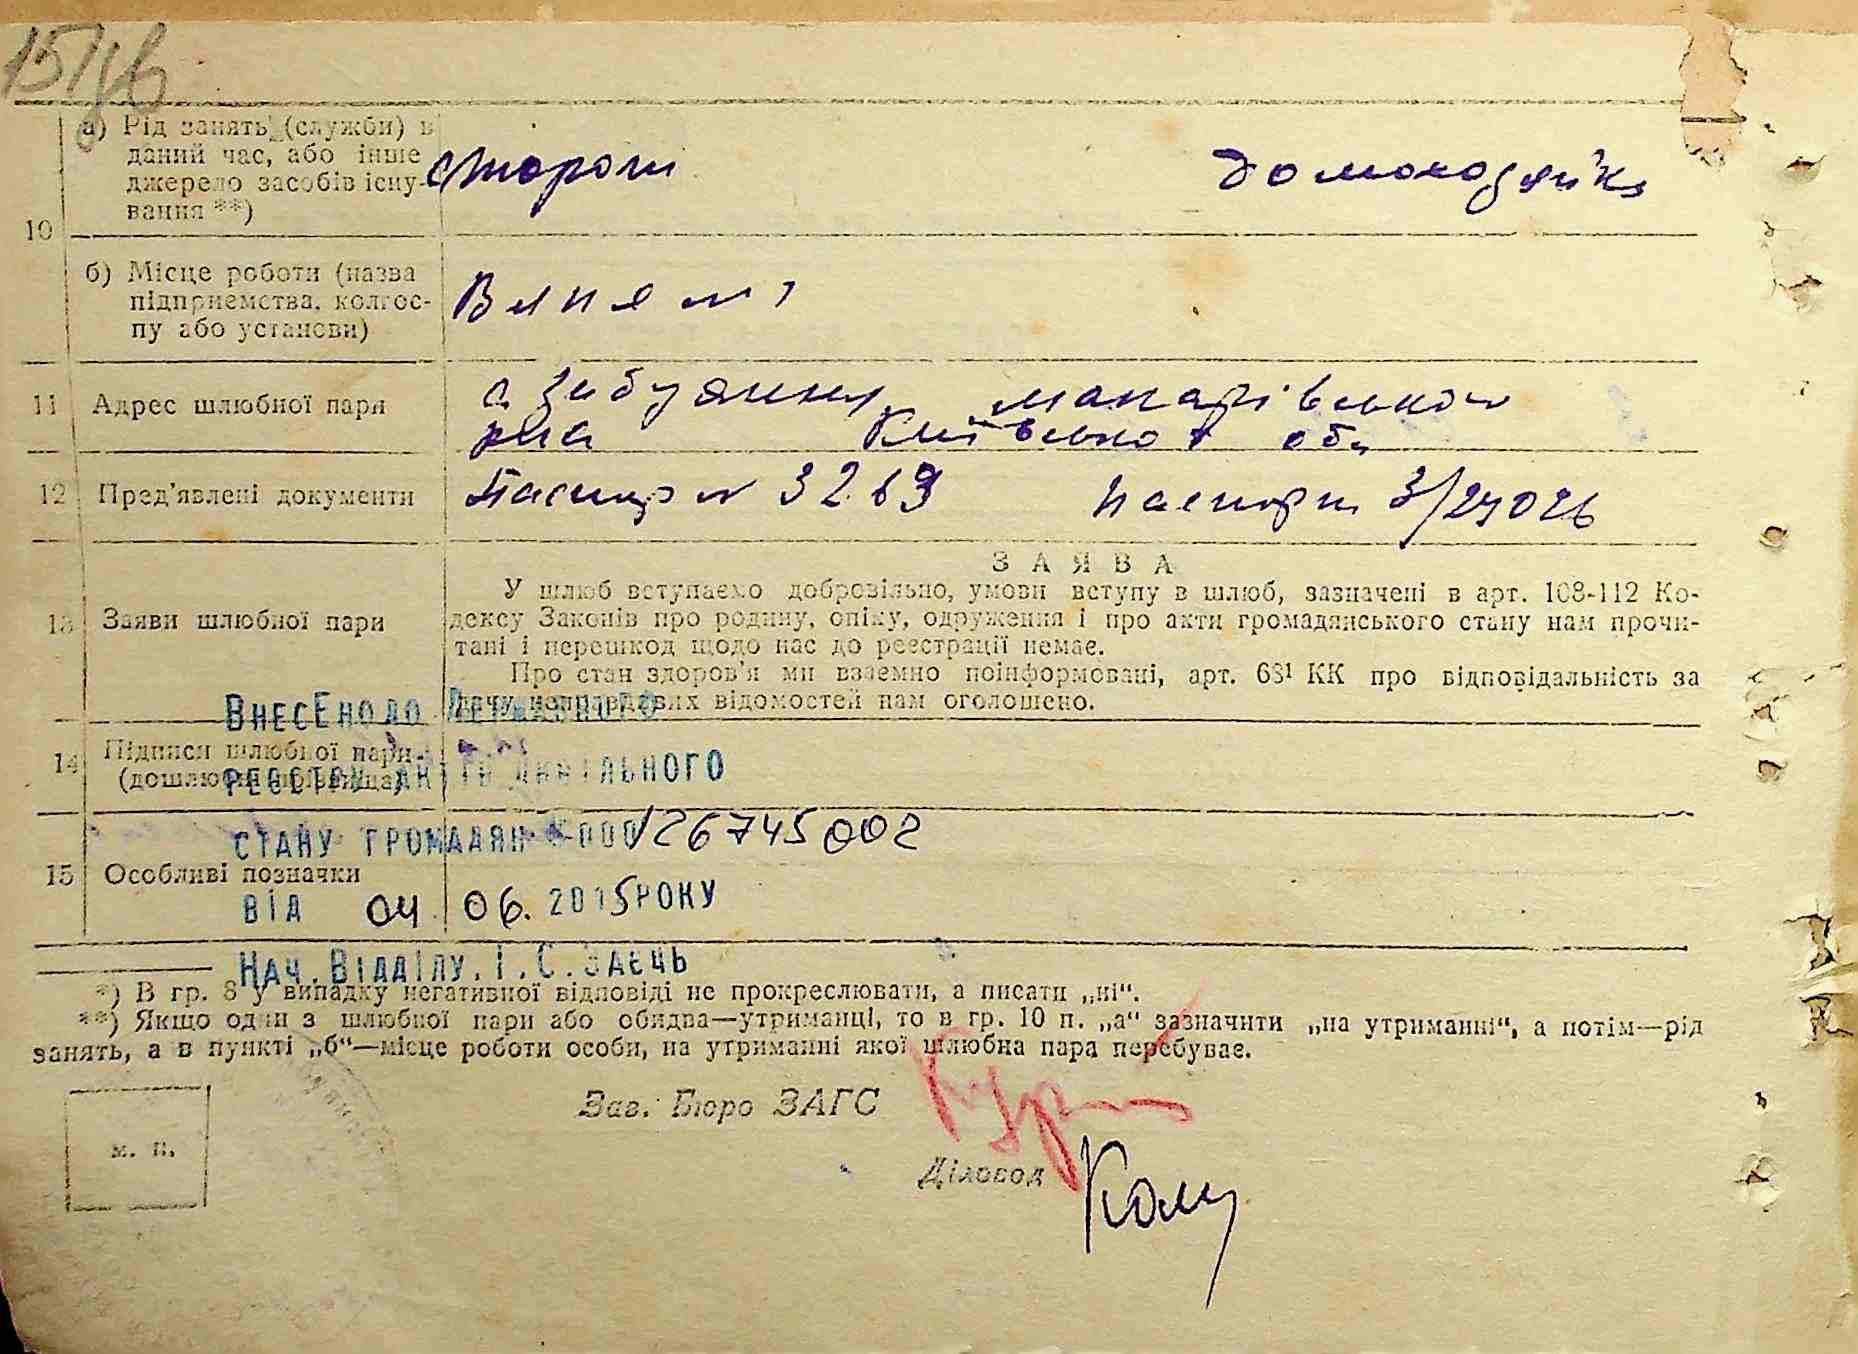 а) Рід занять (служби) в
даний час, або інше
джерело засобів існу-
вання **)
10
сторож
домохозяйка
б) Місце роботи (назва
підприємства, колгос-
пу або установи)
11 Адрес шлюбної пари
с Забуяння Макарівського
р-на Київської обл
12 Пред'явлені документи
Паспорт 3269 Паспорт
13 Заяви шлюбної пари
ЗАЯВА
У шлюб вступаємо добровільно, умови вступу в шлюб, зазначені в арт. 108-112 Ко-
дексу Законів про родину, опіку, одруження і про акти громадянського стану нам прочи-
тані і перешкод щодо нас до реєстрації немає.
Про стан здоров'я ми взаємно поінформовані, арт. 68¹ КК про відповідальність за
дачу неправдивих відомостей нам оголошено.
ВНЕСЕНО ДО ДЕРЖАВНОГО
14 Підписи шлюбної пари
(дошлюбні прізвища)
РЕЄСТРУ АКТІВ ЦИВІЛЬНОГО
СТАНУ ГРОМАДЯН 000126745002
15 Особливі позначки
ВІД 04 06. 2015 РОКУ
НАЧ. ВІДДІЛУ. І. С. ЗАЄЦЬ
*) В гр. 8 у випадку негативної відповіді не прокреслювати, а писати „ні“.
**) Якщо один з шлюбної пари або обидва—утриманці, то в гр. 10 п. „а“ зазначити „на утриманні“, а потім—рід
занять, а в пункті „б“—місце роботи особи, на утриманні якої шлюбна пара перебуває.
Зав. Бюро ЗАГС
м. п.
Діловод